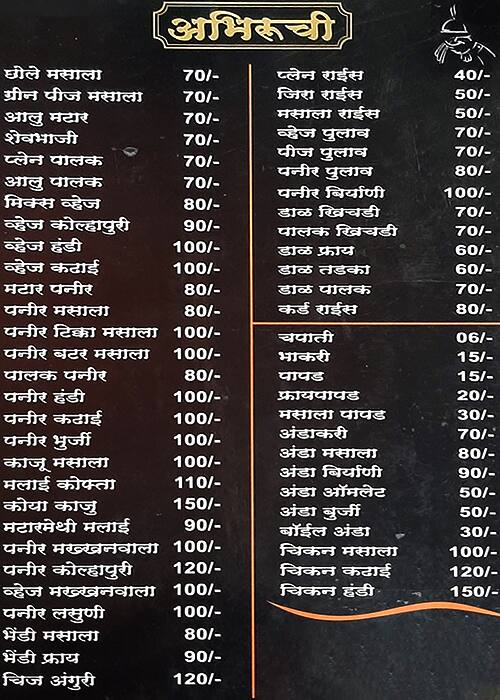 अभिरूची
छोले मसाला 70/-
ग्रीन पिज मसाला 70/-
आलु मटार 70/-
शेवभाजी 70/-
प्लेन पालक 70/-
आलु पालक 70/-
मिक्स व्हेज 80/-
व्हेज कोल्हापुरी 90/-
व्हेज हंडी 100/-
व्हेज कढाई 100/-
मटार पनीर 80/-
पनीर मसाला 80/-
पनीर टिक्का मसाला 100/-
पनीर बटर मसाला 100/-
पालक पनीर 80/-
पनीर हंडी 100/-
पनीर कढाई 100/-
पनीर भुर्जी 100/-
काजू मसाला 100/-
मलाई कोफ्ता 110/-
कोया काजु 150/-
मटारमेथी मलाई 90/-
पनीर मख्खनवाला 100/-
पनीर कोल्हापुरी 120/-
व्हेज मख्खनवाला 100/-
पनीर लसुणी 100/-
भेंडी मसाला 80/-
भेंडी फ्राय 90/-
चिज अंगुरी 120/-
प्लेन राईस 40/-
जिरा राईस 50/-
मसाला राईस 50/-
व्हेज पुलाव 70/-
पीज पुलाव 70/-
पनीर पुलाव 80/-
पनीर बिर्याणी 100/-
डाळ खिचडी 70/-
पालक खिचडी 70/-
डाळ फ्राय 60/-
डाळ तडका 60/-
डाळ पालक 70/-
कर्ड राईस 80/-
चपाती 06/-
भाकरी 15/-
पापड 15/-
फ्रायपापड 20/-
मसाला पापड 30/-
अंडाकरी 70/-
अंडा मसाला 80/-
अंडा बिर्याणी 90/-
अंडा ऑमलेट 50/-
अंडा बुर्जी 50/-
बॉईल अंडा 30/-
चिकन मसाला 100/-
चिकन कढाई 120/-
चिकन हंडी 150/-